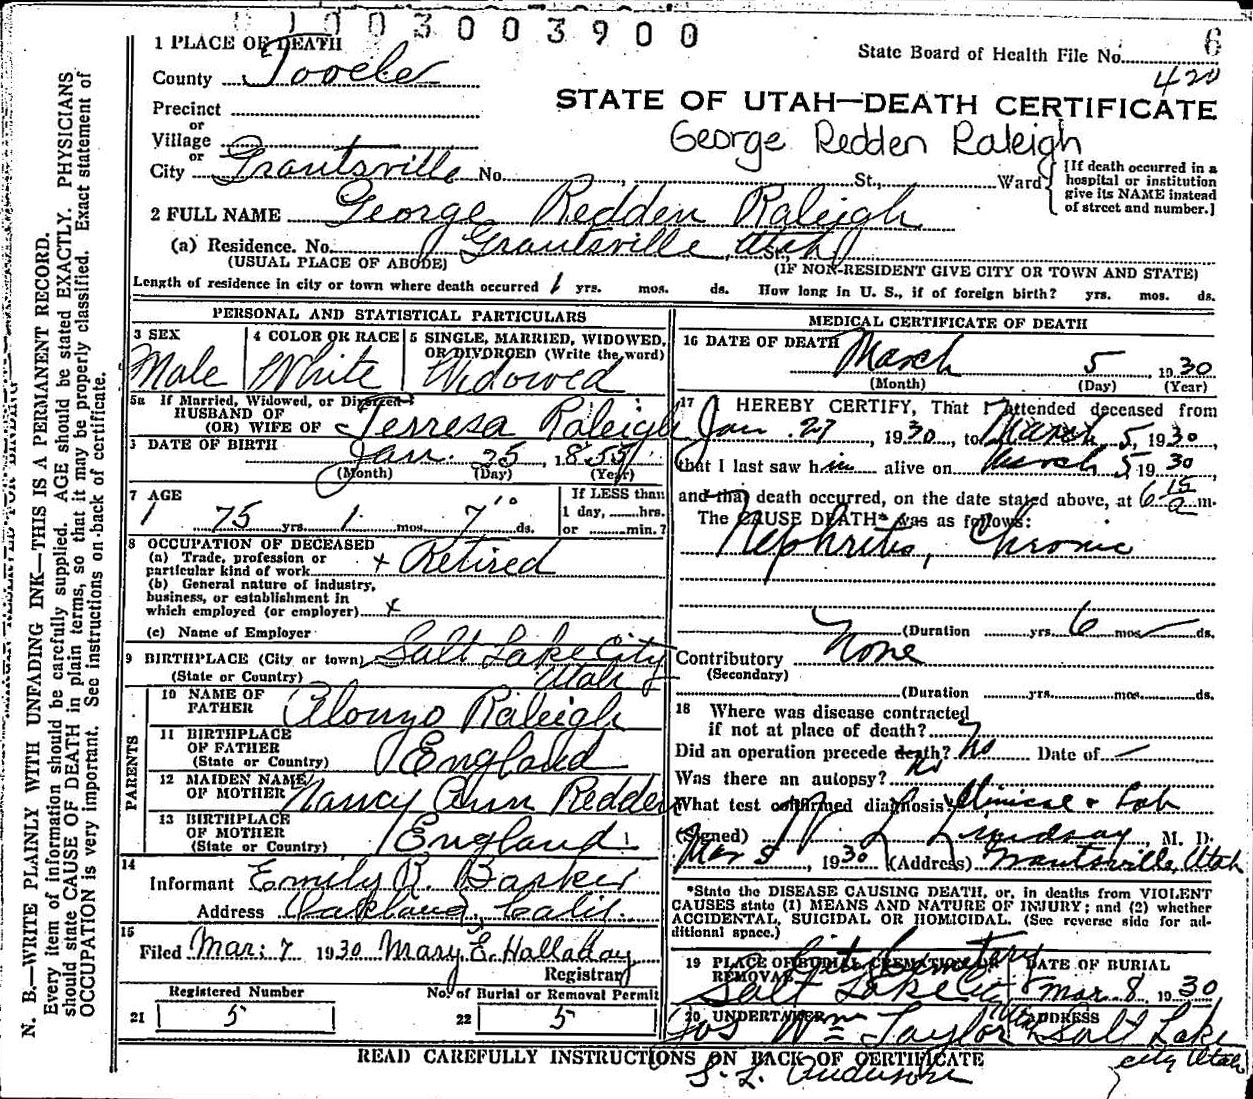 01003003900
1 PLACE OF DEATH
State Board of Health File No. 6
420
County Tooele
STATE OF UTAH—DEATH CERTIFICATE
Precinct
or
Village
George Redden Raleigh
or
City Grantsville No. St., Ward
[If death occurred in a hospital or institution give its NAME instead of street and number.]
2 FULL NAME George Redden Raleigh
(a) Residence. No. Grantsville, Utah St.,
(USUAL PLACE OF ABODE) (IF NON-RESIDENT GIVE CITY OR TOWN AND STATE)
Length of residence in city or town where death occurred 1 yrs. mos. ds. How long in U. S., if of foreign birth? yrs. mos. ds.
PERSONAL AND STATISTICAL PARTICULARS
3 SEX
Male
4 COLOR OR RACE
White
5 SINGLE, MARRIED, WIDOWED, OR DIVORCED (Write the word)
Widowed
5a If Married, Widowed, or Divorced
HUSBAND OF
(OR) WIFE OF Terresa Raleigh
DATE OF BIRTH Jan. 25, 1855
(Month) (Day) (Year)
7 AGE
75 yrs. 1 mos. 7 ds.
If LESS than
1 day, hrs.
or min.?
8 OCCUPATION OF DECEASED
(a) Trade, profession or
particular kind of work x Retired
(b) General nature of industry,
business, or establishment in
which employed (or employer) x
(c) Name of Employer
9 BIRTHPLACE (City or town) Salt Lake City
(State or Country) Utah
PARENTS
10 NAME OF
FATHER Alonzo Raleigh
11 BIRTHPLACE
OF FATHER England
(State or Country)
12 MAIDEN NAME
OF MOTHER Nancy Ann Redden
13 BIRTHPLACE
OF MOTHER England
(State or Country)
14
Informant Emily R. Barker
Address Oakland, Calif.
15
Filed Mar. 7 1930 Mary E. Halladay
Registrar
Registered Number No. of Burial or Removal Permit
21 5 22 5
MEDICAL CERTIFICATE OF DEATH
16 DATE OF DEATH March 5, 1930
(Month) (Day) (Year)
17 I HEREBY CERTIFY, That I attended deceased from
Jan. 27, 1930, to March 5, 1930,
that I last saw him alive on March 5 1930
and that death occurred, on the date stated above, at 6 15 a m.
The CAUSE DEATH* was as follows:
Nephritis, Chronic
(Duration yrs. 6 mos. ds.
Contributory None
(Secondary)
(Duration yrs. mos. ds.
18 Where was disease contracted
if not at place of death?
Did an operation precede death? No Date of —
Was there an autopsy? No
What test confirmed diagnosis? Clinical & Lab
(Signed) Lindsay M. D.
Mar 5, 1930 (Address) Grantsville, Utah
*State the DISEASE CAUSING DEATH, or, in deaths from VIOLENT
CAUSES state (1) MEANS AND NATURE OF INJURY; and (2) whether
ACCIDENTAL, SUICIDAL OR HOMICIDAL. (See reverse side for ad-
ditional space.)
19 PLACE OF BURIAL CREMATION OR REMOVAL City Cemetery
Salt Lake City
DATE OF BURIAL
Mar. 8, 1930
20 UNDERTAKER
Jos Wm Taylor
Utah
ADDRESS
Salt Lake
City Utah
READ CAREFULLY INSTRUCTIONS ON BACK OF CERTIFICATE
S. L. Anderson
N. B.—WRITE PLAINLY WITH UNFADING INK—THIS IS A PERMANENT RECORD.
Every item of information should be carefully supplied. AGE should be stated EXACTLY. PHYSICIANS
should state CAUSE OF DEATH in plain terms, so that it may be properly classified. Exact statement of
OCCUPATION is very important. See instructions on back of certificate.